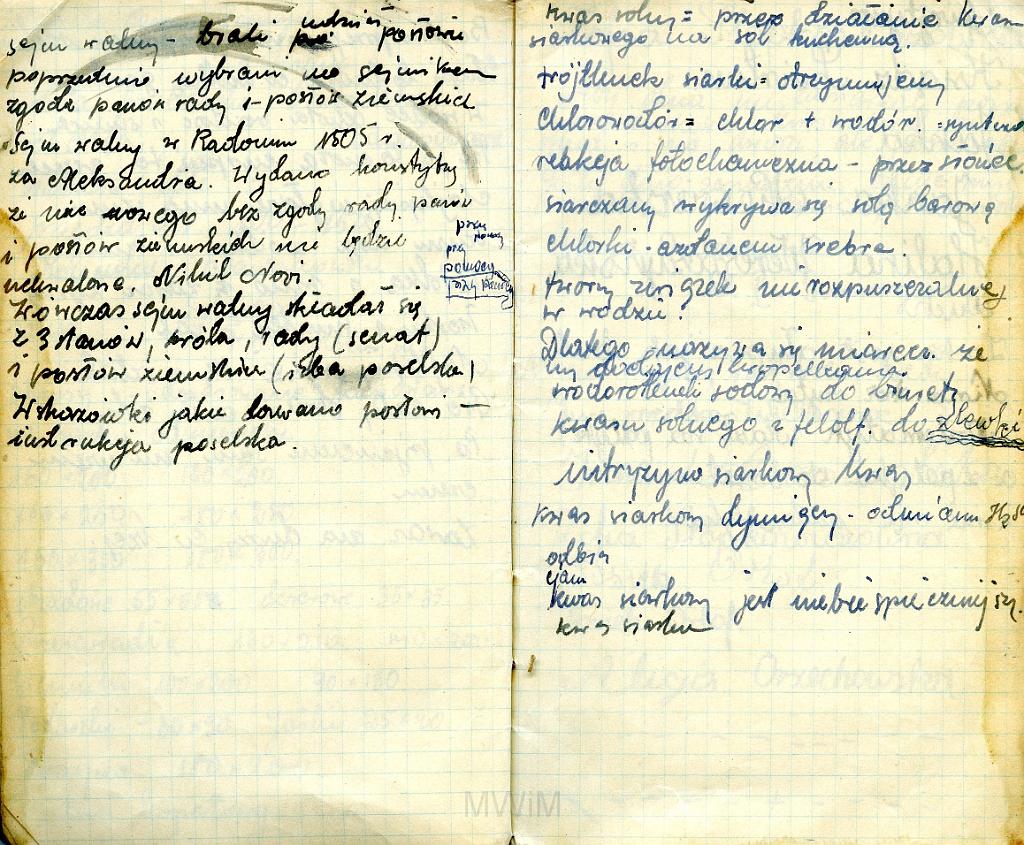 sejm walny - brali udział posłowie
poprzednio wybrani na sejmikem
zgoda panów rady i posłów ziemskich
Sejm walny w Radomiu 1505 r.
za Aleksandra. Wydano konstytuję
że nic nowego bez zgody rady panów
i posłów ziemskich nie będzie
uchwalone. Nihil Novi.
Wówczas sejm walny składał się
z 3 stanów, króla, rady (senat)
i posłów ziemskim (izba poselska)
Wskazówki jakie dawano posłowi —
instrukcja poselska.
pomocy
kwas solny = przez działanie kwasu
siarkowego na sól kuchenną.
trójtlenek siarki = otrzymujemy
Chlorowodór = chlor + wodór.
reakcja fotochemiczna - przez słońce.
siarczany wykrywa się solą barową
chlorki - azotanem srebra.
tworzy związek nierozpuszczalny
w wodzie?
Dlatego nazywa się że
wodorotlenek sodowy do
kwasu solnego z fenolf. do zlewki
nitryzyno siarkowy kwas
kwas siarkowy dymiący - odmiana
kwas siarkowy jest niebezpieczniejszy.
kwas siarkow
MWiM